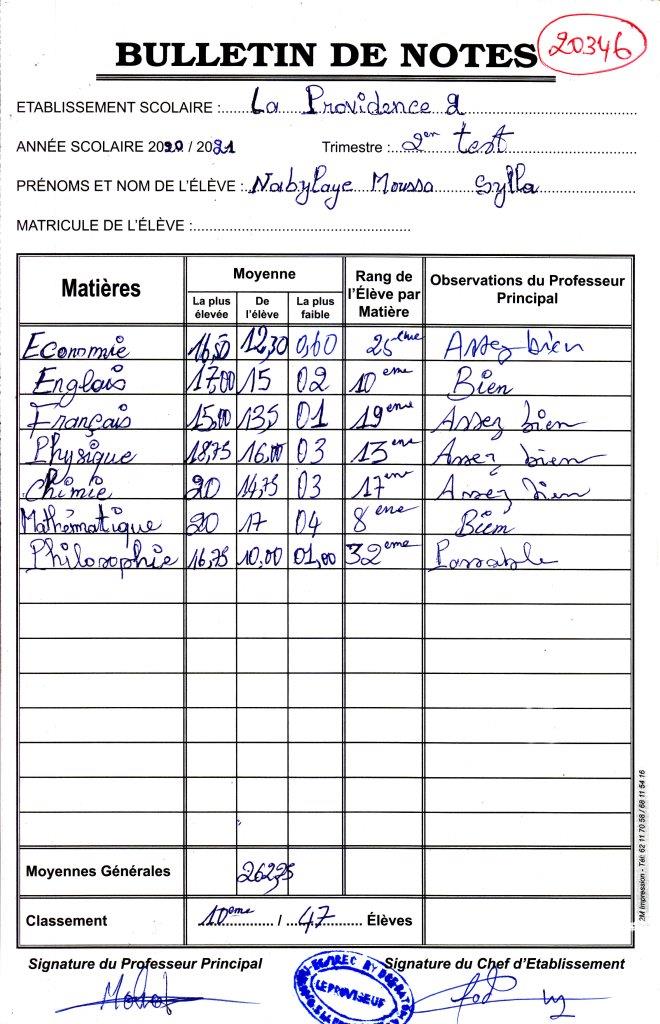 BULLETIN DE NOTES 20346
ETABLISSEMENT SCOLAIRE : La Providence 2
ANNÉE SCOLAIRE 2020 / 2021 Trimestre : 2en test
PRÉNOMS ET NOM DE L'ÉLÈVE : Nabylaye Moussa Sylla
MATRICULE DE L'ÉLÈVE :
Matières Moyenne Rang de l'Élève par Matière Observations du Professeur Principal
La plus élevée De l'élève La plus faible
Economie 16,50 12,30 0,60 25ème Assez bien
Englais 17,00 15 02 10ème Bien
Français 15,00 13,5 01 19ème Assez bien
Physique 18,75 16,00 03 13ème Assez bien
Chimie 20 14,75 03 17ème Assez bien
Mathématique 20 17 04 8ème Bien
Philosophie 16,75 10,00 01,00 32ème Passable
Moyennes Générales 262,25
Classement 10ème / 47 Élèves
Signature du Professeur Principal Signature du Chef d'Etablissement
LE PROVISEUR
2M Impression - Tél: 62 11 70 58 / 68 11 54 16